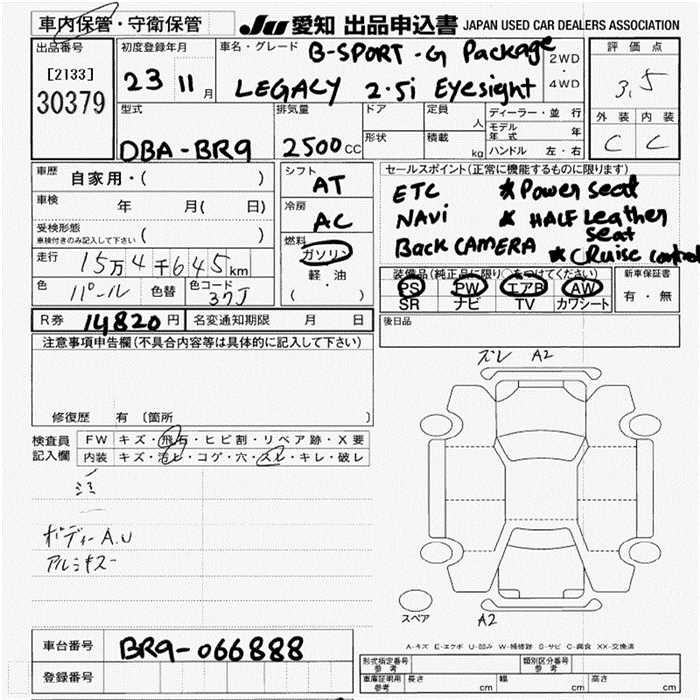 車内保管・守衛保管
JU 愛知 出品申込書 JAPAN USED CAR DEALERS ASSOCIATION
出品番号
[2133]
30379
初度登録年月
23 11月
車名・グレード
B-SPORT・G Package
LEGACY 2.5i Eyesight
2WD
・
4WD
評価点
3.5
外装 内装
C C
型式
DBA-BR9
排気量
2500CC
ドア
定員
人
形状
積載
kg
ディーラー・並行
モデル年式 年
ハンドル 左・右
車歴
自家用・( )
車検
年 月( 日)
受検形態
車検付きのみ記入して下さい ( )
走行
15万4千645km
色
パール
色替
色コード
37J
シフト
AT
冷房
AC
燃料
ガソリン
軽油
( ・ )
セールスポイント(正常に機能するものに限ります)
ETC ★Power Seat
NAVi ★HALF Leather Seat
Back CAMERA ★Cruise control
装備品(純正品に限り○をつけてください)
PS PW エアB AW
SR ナビ TV カワシート
新車保証書
有・無
R券 14820円
名変通知期限 月 日
後日品
注意事項申告欄(不具合内容等は具体的に記入して下さい)
修復歴 有 〔箇所 〕
検査員
記入欄
FW キズ・飛石・ヒビ割・リペア跡・X要
内装 キズ・汚レ・コゲ・穴・スレ・キレ・破レ
ボディーA.U
アルミキズー
ズレ A2
スペア
A2
A-キズ E-エクボ U-凹み W-補修跡 S-サビ C-腐食 XX-交換済
車台番号
BR9-066888
登録番号
形式指定番号
参考
類別区分番号
参考
車庫証明用
参考
長さ cm
幅 cm
高さ cm